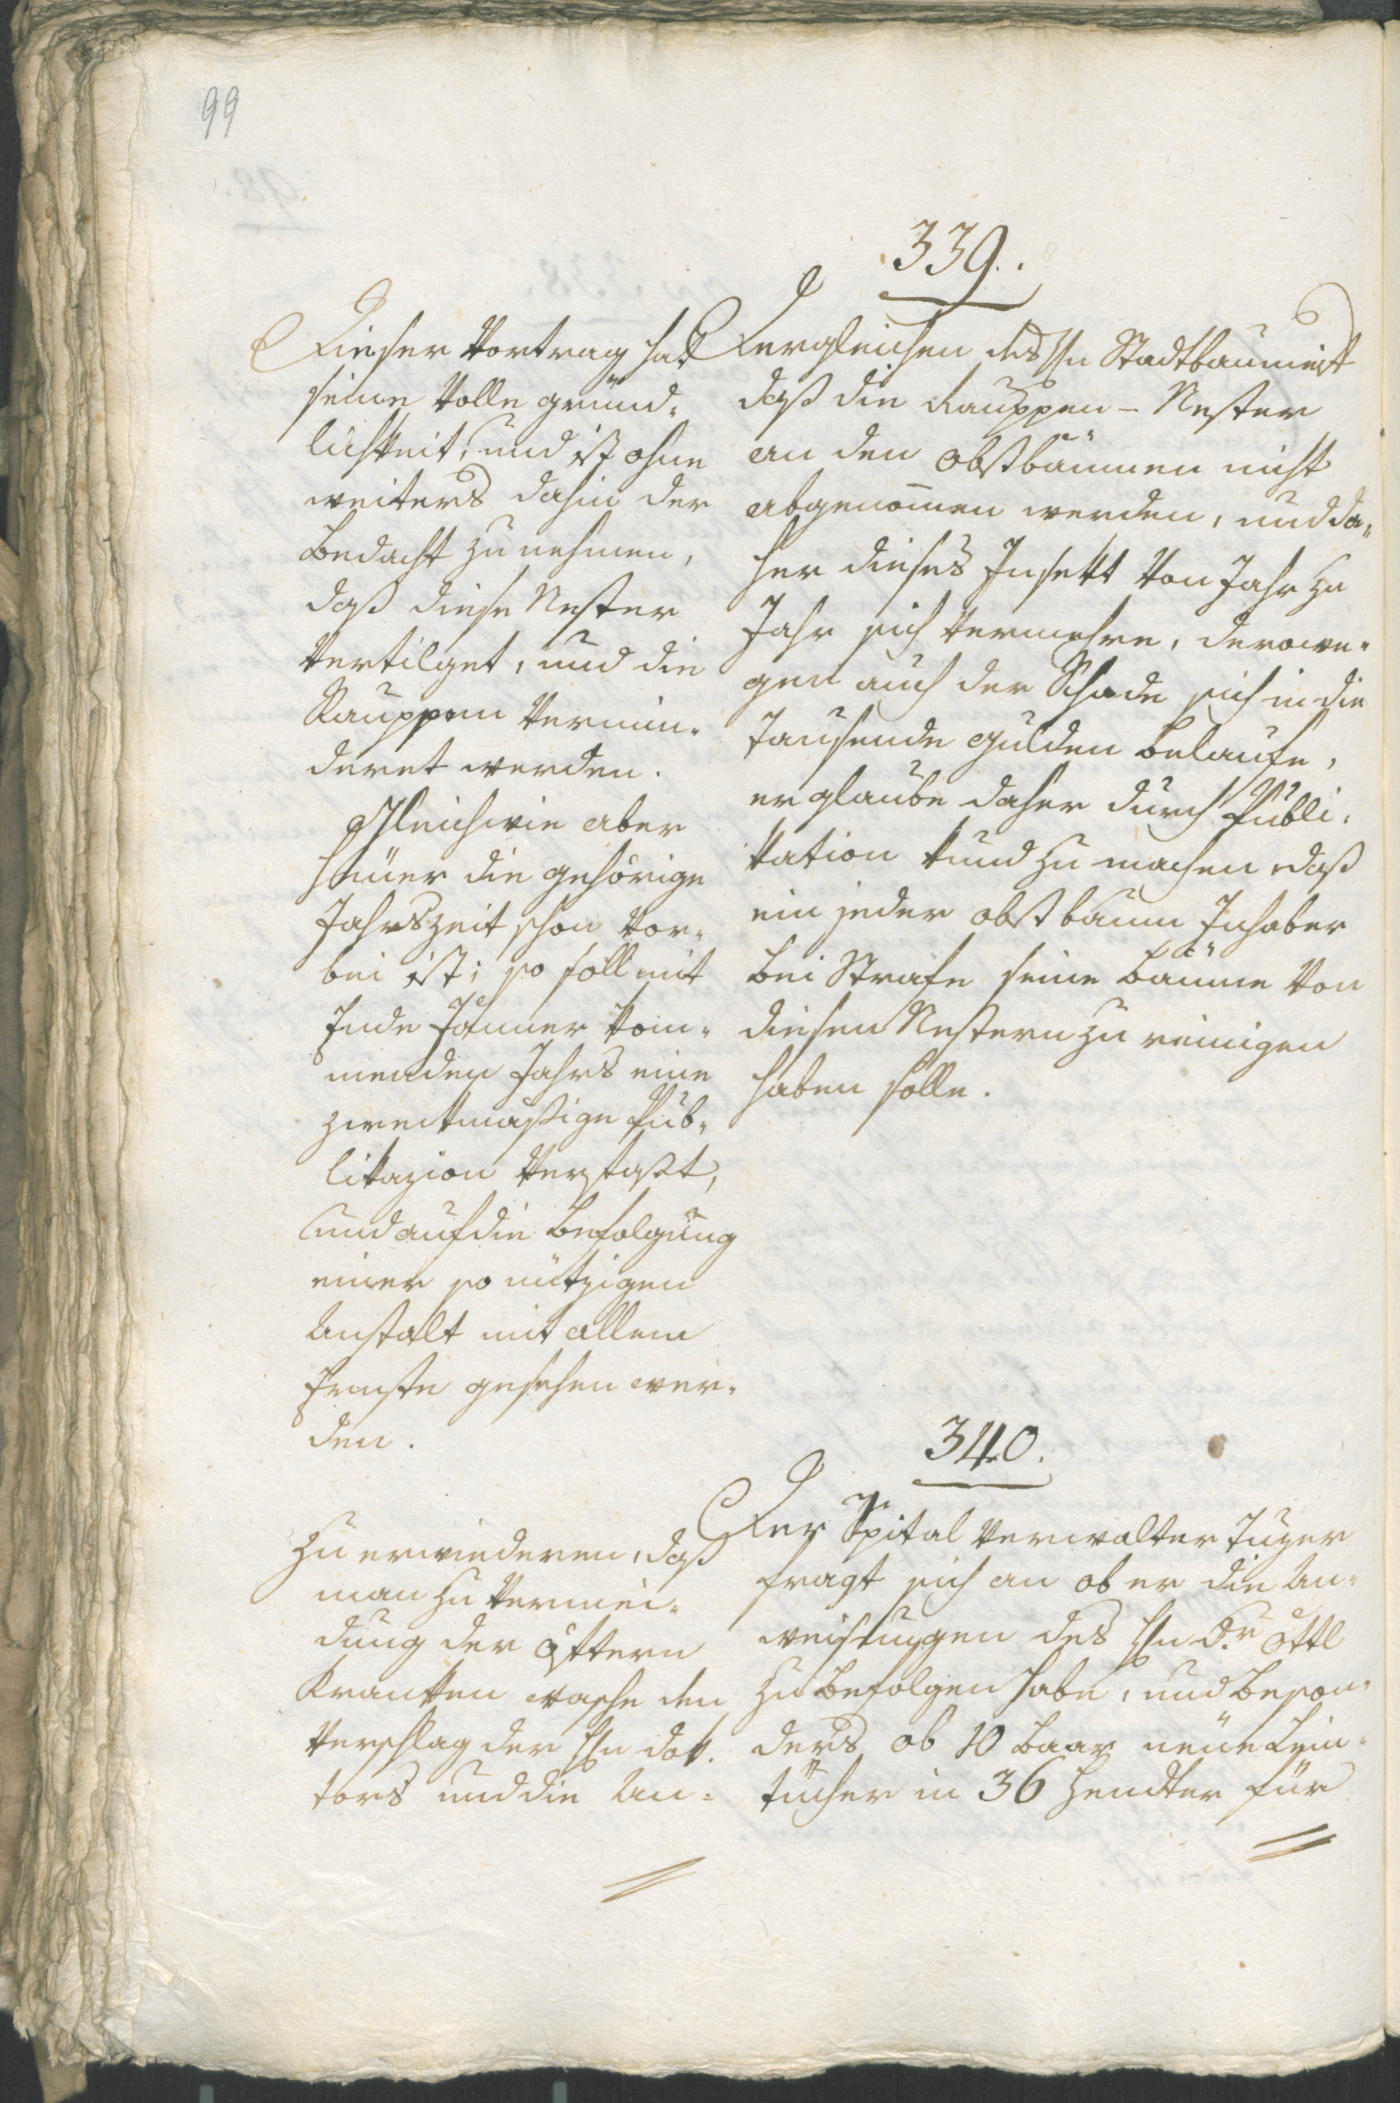 99
339.
Dieser Vortrag hat
seine Volle gründ=
lichkeit, und ist ohne
weiters dahin der
Bedacht zu nehmen,
daß diese Nester
Vertilget, und die
Rauppen Vermin=
deret werden.
Gleichwie aber
heuer die gehörige
Jahrszeit schon Vor=
bei ist; so soll mit
Ende Jänner kom=
menden Jahrs eine
zwekmäßige Pub=
likazion Verfaßt,
und auf die Befolgung
einer so nützigen
Anstalt mit allem
Ernste gesehen wer=
den.
Dergleichen des Hn Stadtbaumeist
daß die Rauppen - Nester
an den obstbäumen nicht
abgenommen werden, und da=
her dieses Insekt Von Jahr zu
Jahr sich Vermehre, derowe=
gen auch der Schade sich in die
Tausende Gulden belaufe,
er glaube daher durch Publi=
kation kund zu machen daß
ein jeder obstbaum Inhaber
bei Strafe seine bäume Von
diesen Nestern zu reinigen
haben solle.
340.
Zu erwiederen, daß
man zu Vermei=
dung der öftern
Kranken wasche den
Vorschlag der Hn dok=
tors und die An=
Der Spital Verwalter
fragt sich an ob er die An=
weisungen des Hn Dr. Öttl
zu befolgen habe, und beson=
ders ob 10 baar neue Lein=
tücher in 36 Hendter für